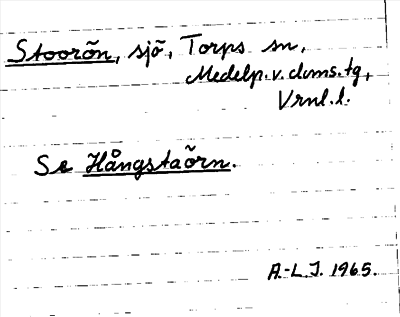 Stoorön, sjö, Torps sn,
Medelp. v. doms.tg,
Vrnl. l.
Se Hångstaörn.
A.-L.J. 1965.